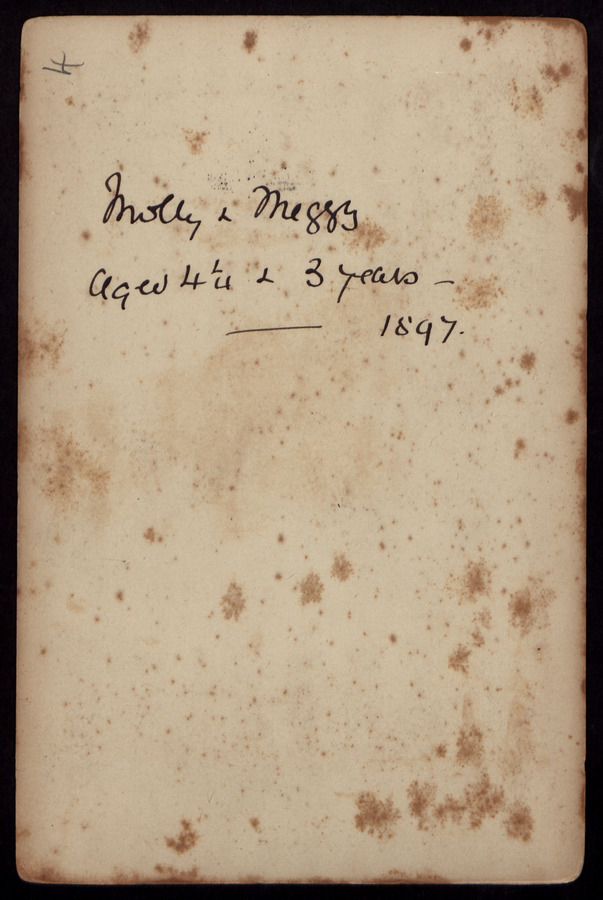 4
Molly & Meggy
Aged 4¼ & 3 years –
1897.